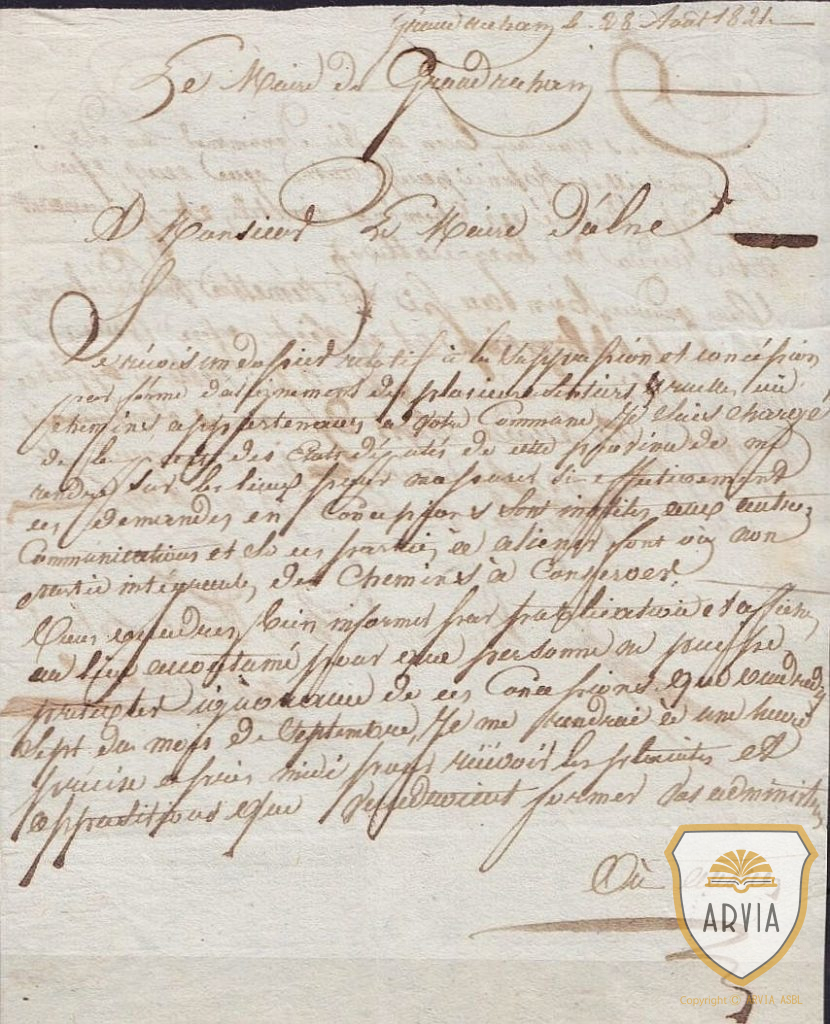 Grandrechain le 28 Août 1821.
Le Maire de Grandrechain
A Monsieur Le Maire d'olne
Je reçois un dossier relatif à la Suppression et concession
par forme d'alignement de plusieurs sentiers, ruelles, ou
chemins appartenances à Votre Commune, Je suis chargé
de la part des Etats députés de cette province de me
rendre sur les lieux pour m'assurer si effectivement
ces demandes en Concessions sont inutiles aux autres
Communications et si ces parties à aliener font où non
partie intégrante des Chemins à Conserver.
Vous voudrez bien informer par publication et affiches
au lieu accoutumé pour que personne ne puisse
prétexter ignorance de ces Concessions que vendredi
Sept du mois de Septembre, Je me rendrai à une heure
précise après midi pour recevoir les plaintes et
oppositions que voudroient former vos administrés
Où
ARVIA
Copyright © ARVIA ASBL